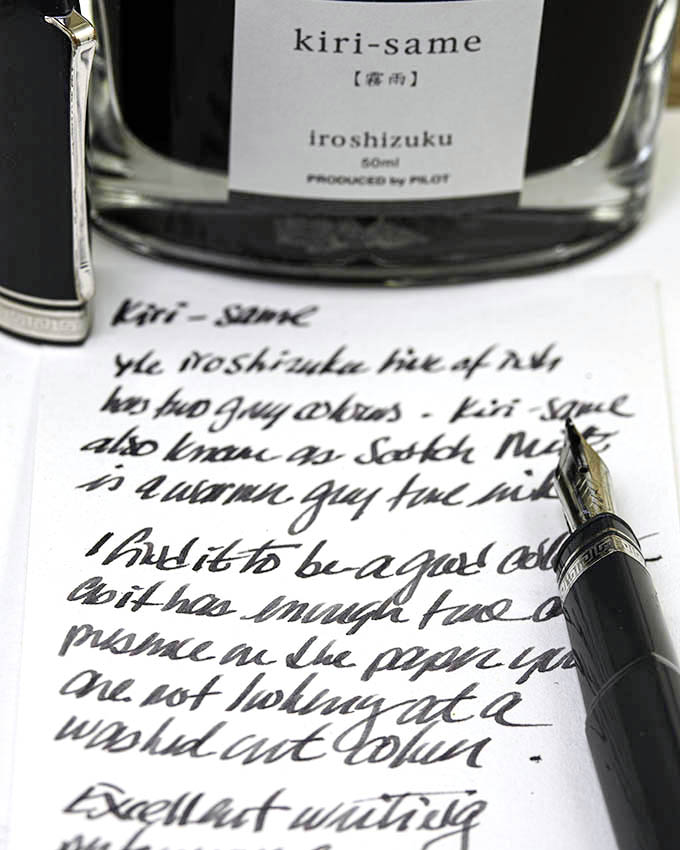 kiri-same
【霧雨】
iroshizuku
50ml
PRODUCED by PILOT
Kiri - same
The iroshizuku line of inks
has two grey colours - Kiri - same
also known as Scotch Mist
is a warmer grey tone ink
I find it to be a good
as it has enough tone
presence on the paper you
are not looking at a
washed out colour .
Excellent writing